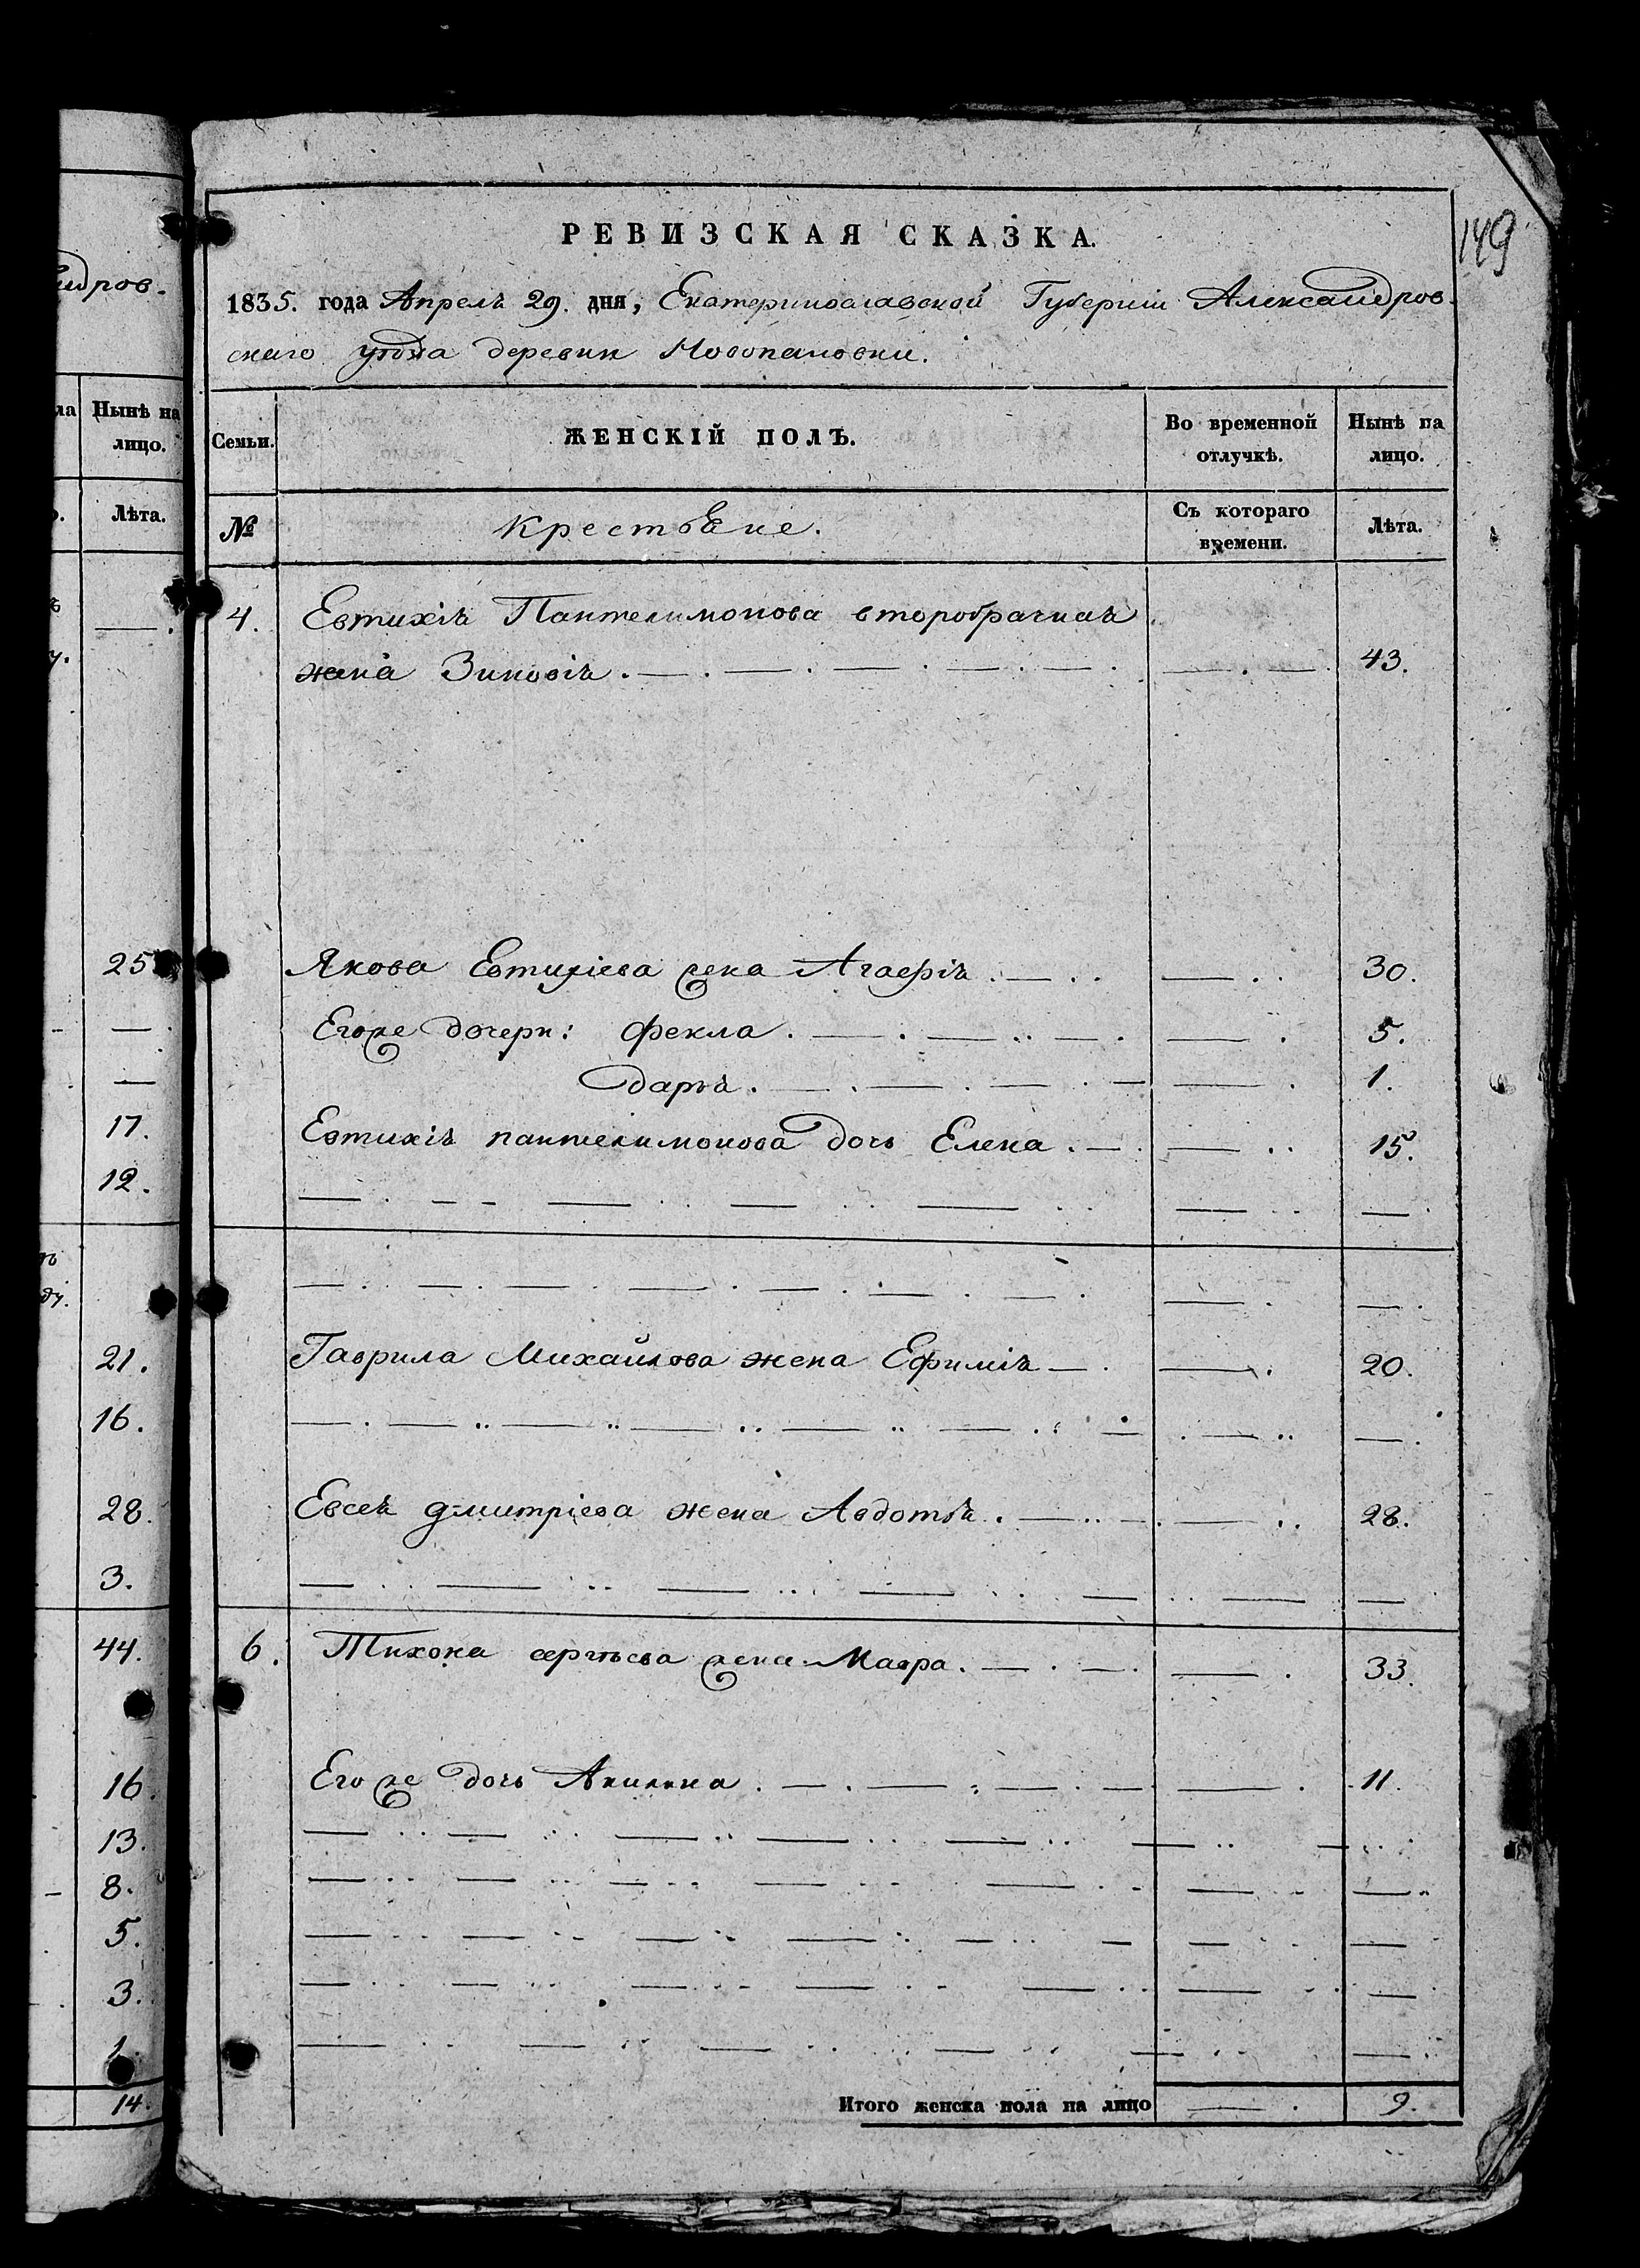 идров.
ла Нынѣ на
лицо.
Лѣта.
25
17.
12.
21.
16.
28.
3.
44.
16.
13.
8.
5.
3.
1.
14.
149
РЕВИЗСКАЯ СКАЗКА.
1835. года Апреля 29. дня, Екатеринославской Губерніи Александров
скаго уѣзда деревни Новопановки.
Семьи. ЖЕНСКІЙ ПОЛЪ. Во временной Нынѣ на
отлучкѣ. лицо.
№ Крестьяне. Съ котораго Лѣта.
времени.
4. Евтихія Пантелимонова второбрачная
жена Зиновія . — . — . — . — . — . — . 43.
Якова Евтихіева жена Агафія . — . . — . . 30.
Егоже дочери: Фекла . — . — .. — . — . 5.
Дарья . — . — . — . — — . 1.
Евтихія пантелимонова дочь Елена . — . — . . 15.
Гаврила Михайлова жена Ефимія — . — . 20.
Евсея дмитріева жена Авдотья . — .. — . — . . 28.
6. Тихона сергѣева жена Мавра . — . — . — . 33.
Его же дочь Акилина . — . — : — . — . — . 11.
Итого женска пола на лицо — . 9.